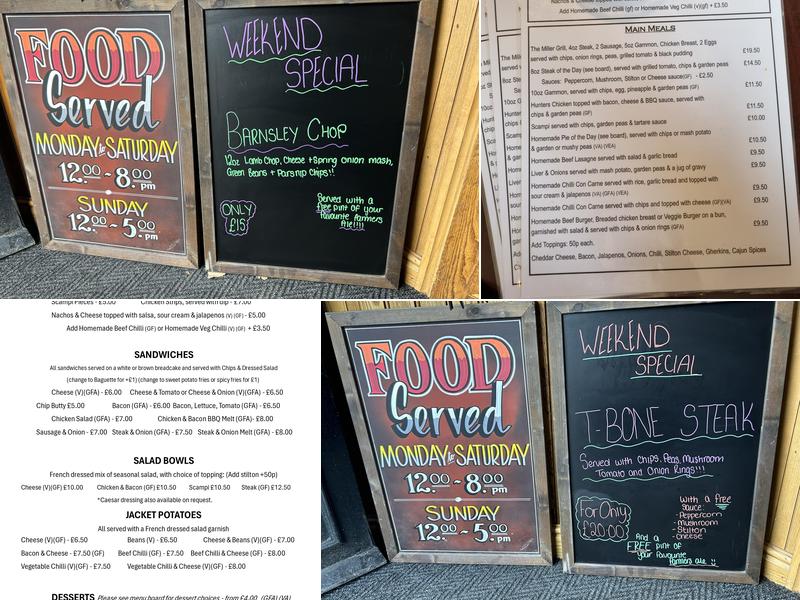 FOOD
Served
MONDAY to SATURDAY
12.00 ~ 8.00 pm
SUNDAY
12.00 ~ 5.00 pm
WEEKEND
SPECIAL
BARNSLEY CHOP
12oz Lamb Chop, Cheese + Spring onion mash,
Green Beans + Parsnip Chips!!
ONLY
£15
Served with a
free pint of your
favourite farmers
Ale!!!!
Nachos & Cheese topped with salsa, sour cream & jalapenos
Add Homemade Beef Chilli (gf) or Homemade Veg Chilli (v)(gf) + £3.50
MAIN MEALS
The Miller Grill, 4oz Steak, 2 Sausage, 5oz Gammon, Chicken Breast, 2 Eggs
served with chips, onion rings, peas, grilled tomato & black pudding £19.50
8oz Steak of the Day (see board), served with grilled tomato, chips & garden peas £14.50
Sauces: Peppercorn, Mushroom, Stilton or Cheese sauce(GF) - £2.50
10oz Gammon, served with chips, egg, pineapple & garden peas (GF) £11.50
Hunters Chicken topped with bacon, cheese & BBQ sauce, served with
chips & garden peas (GF) £11.50
Scampi served with chips, garden peas & tartare sauce £10.00
Homemade Pie of the Day (see board), served with chips or mash potato
& garden or mushy peas (VA) (VEA) £10.50
Homemade Beef Lasagne served with salad & garlic bread £9.50
Liver & Onions served with mash potato, garden peas & a jug of gravy £9.50
Homemade Chilli Con Carne served with rice, garlic bread and topped with
sour cream & jalapenos (VA) (GFA) (VEA) £9.50
Homemade Chilli Con Carne served with chips and topped with cheese (GF)(VA) £9.50
Homemade Beef Burger, Breaded chicken breast or Veggie Burger on a bun,
garnished with salad & served with chips & onion rings (GFA) £9.50
Add Toppings: 50p each.
Cheddar Cheese, Bacon, Jalapenos, Onions, Chilli, Stilton Cheese, Gherkins, Cajun Spices
Scampi Pieces - £5.00 Chicken Strips, served with dip - £7.00
Nachos & Cheese topped with salsa, sour cream & jalapenos (V) (GF) - £5.00
Add Homemade Beef Chilli (GF) or Homemade Veg Chilli (V) (GF) + £3.50
SANDWICHES
All sandwiches served on a white or brown breadcake and served with Chips & Dressed Salad
(change to Baguette for +£1) (change to sweet potato fries or spicy fries for £1)
Cheese (V)(GFA) - £6.00 Cheese & Tomato or Cheese & Onion (V)(GFA) - £6.50
Chip Butty £5.00 Bacon (GFA) - £6.00 Bacon, Lettuce, Tomato (GFA) - £6.50
Chicken Salad (GFA) - £7.00 Chicken & Bacon BBQ Melt (GFA)- £8.00
Sausage & Onion - £7.00 Steak & Onion (GFA) - £7.50 Steak & Onion Melt (GFA) - £8.00
SALAD BOWLS
French dressed mix of seasonal salad, with choice of topping: (Add stilton +50p)
Cheese (V)(GF) £10.00 Chicken & Bacon (GF) £10.50 Scampi £10.50 Steak (GF) £12.50
*Caesar dressing also available on request.
JACKET POTATOES
All served with a French dressed salad garnish
Cheese (V)(GF) - £6.50 Beans (V) - £6.50 Cheese & Beans (V)(GF) - £7.00
Bacon & Cheese - £7.50 (GF) Beef Chilli (GF) - £7.50 Beef Chilli & Cheese (GF) - £8.00
Vegetable Chilli (V)(GF) - £7.50 Vegetable Chilli & Cheese (V)(GF) - £8.00
DESSERTS Please see menu board for dessert choices - from £4.00 (GFA) (VA)
FOOD
Served
MONDAY to SATURDAY
12.00 ~ 8.00 pm
SUNDAY
12.00 ~ 5.00 pm
WEEKEND
SPECIAL
T-BONE STEAK
Served with Chips, Peas, Mushroom
Tomato and Onion Rings!!!
For Only
£20.00
With a free
sauce:
- Peppercorn
- Mushroom
- Stilton
- Cheese
And a
FREE pint of
your favourite
farmers ale !!